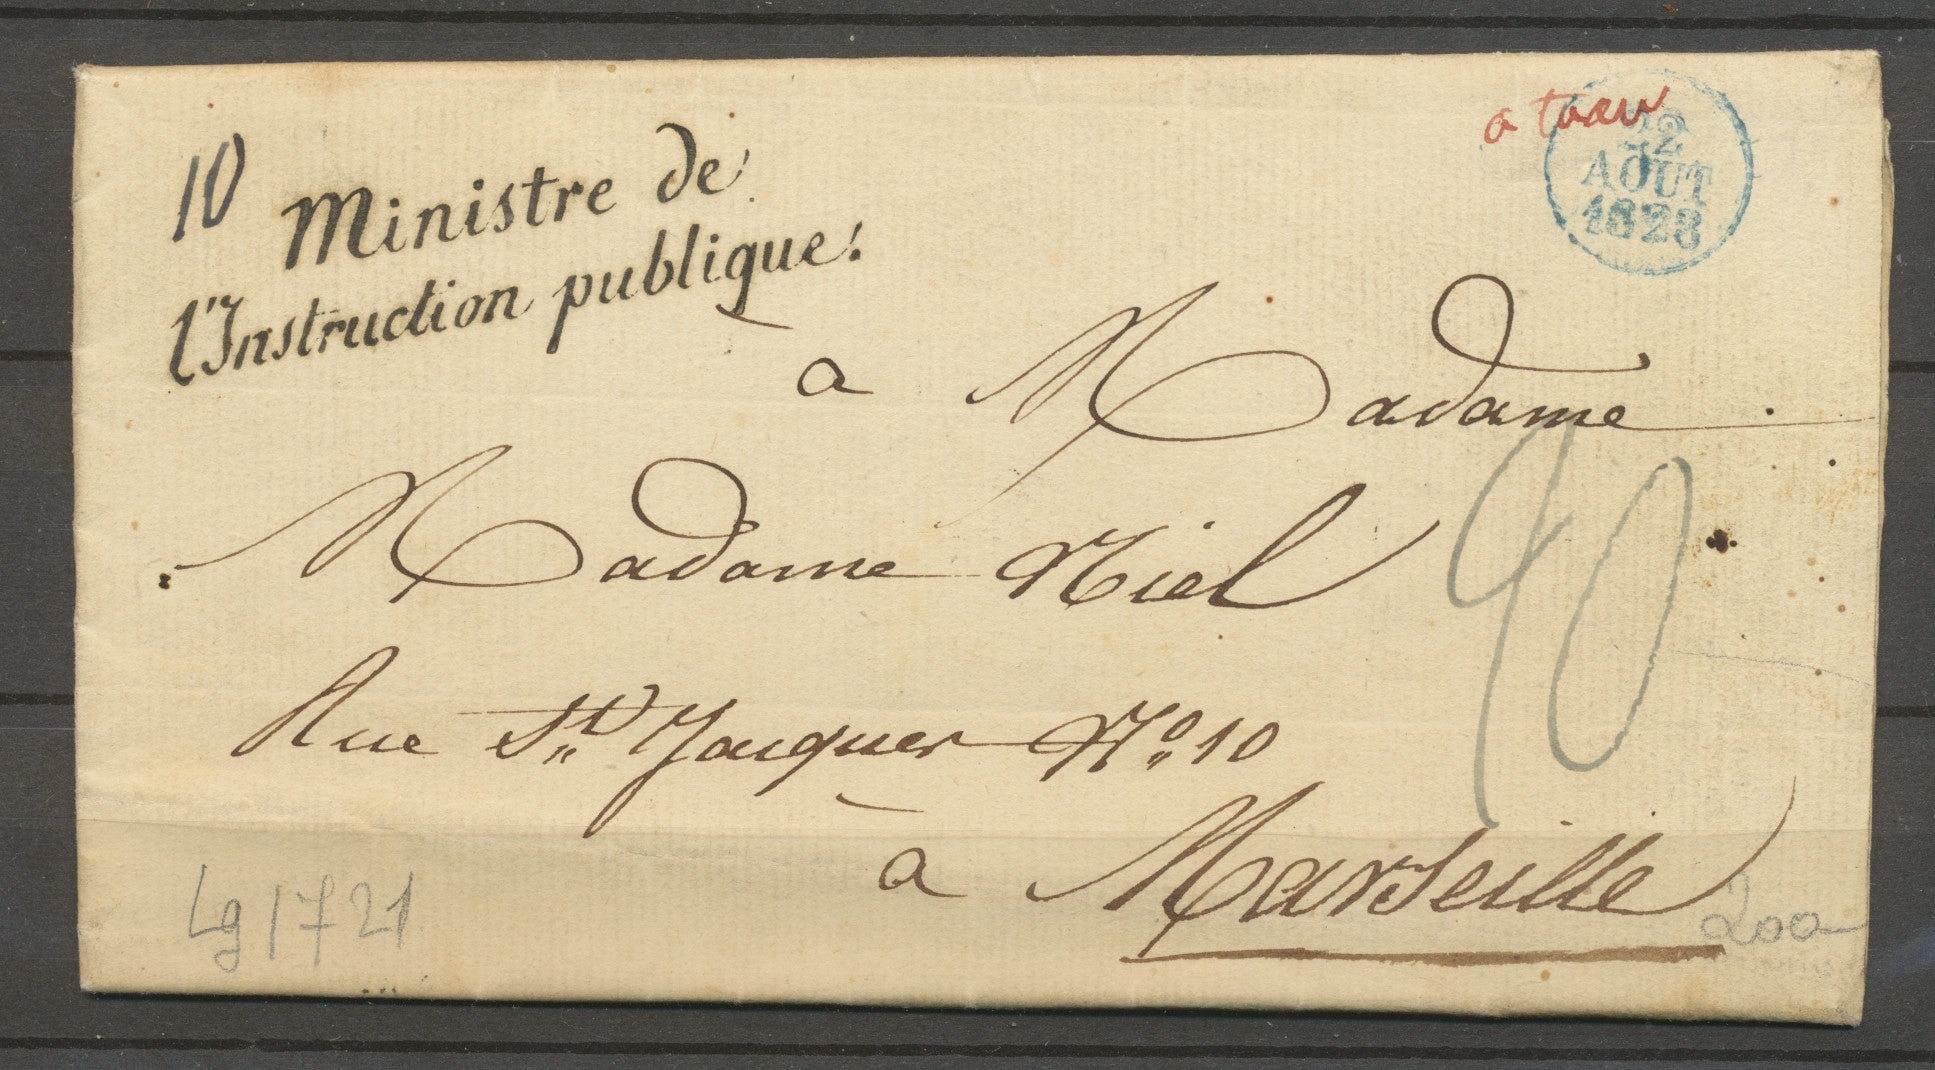 10
Ministre de
l'Instruction publique.
a taxer
22
AOUT
1828
à Madame
Madame Niel
Rue St Jacques No 10
90
à Marseille
Lg 1721
200